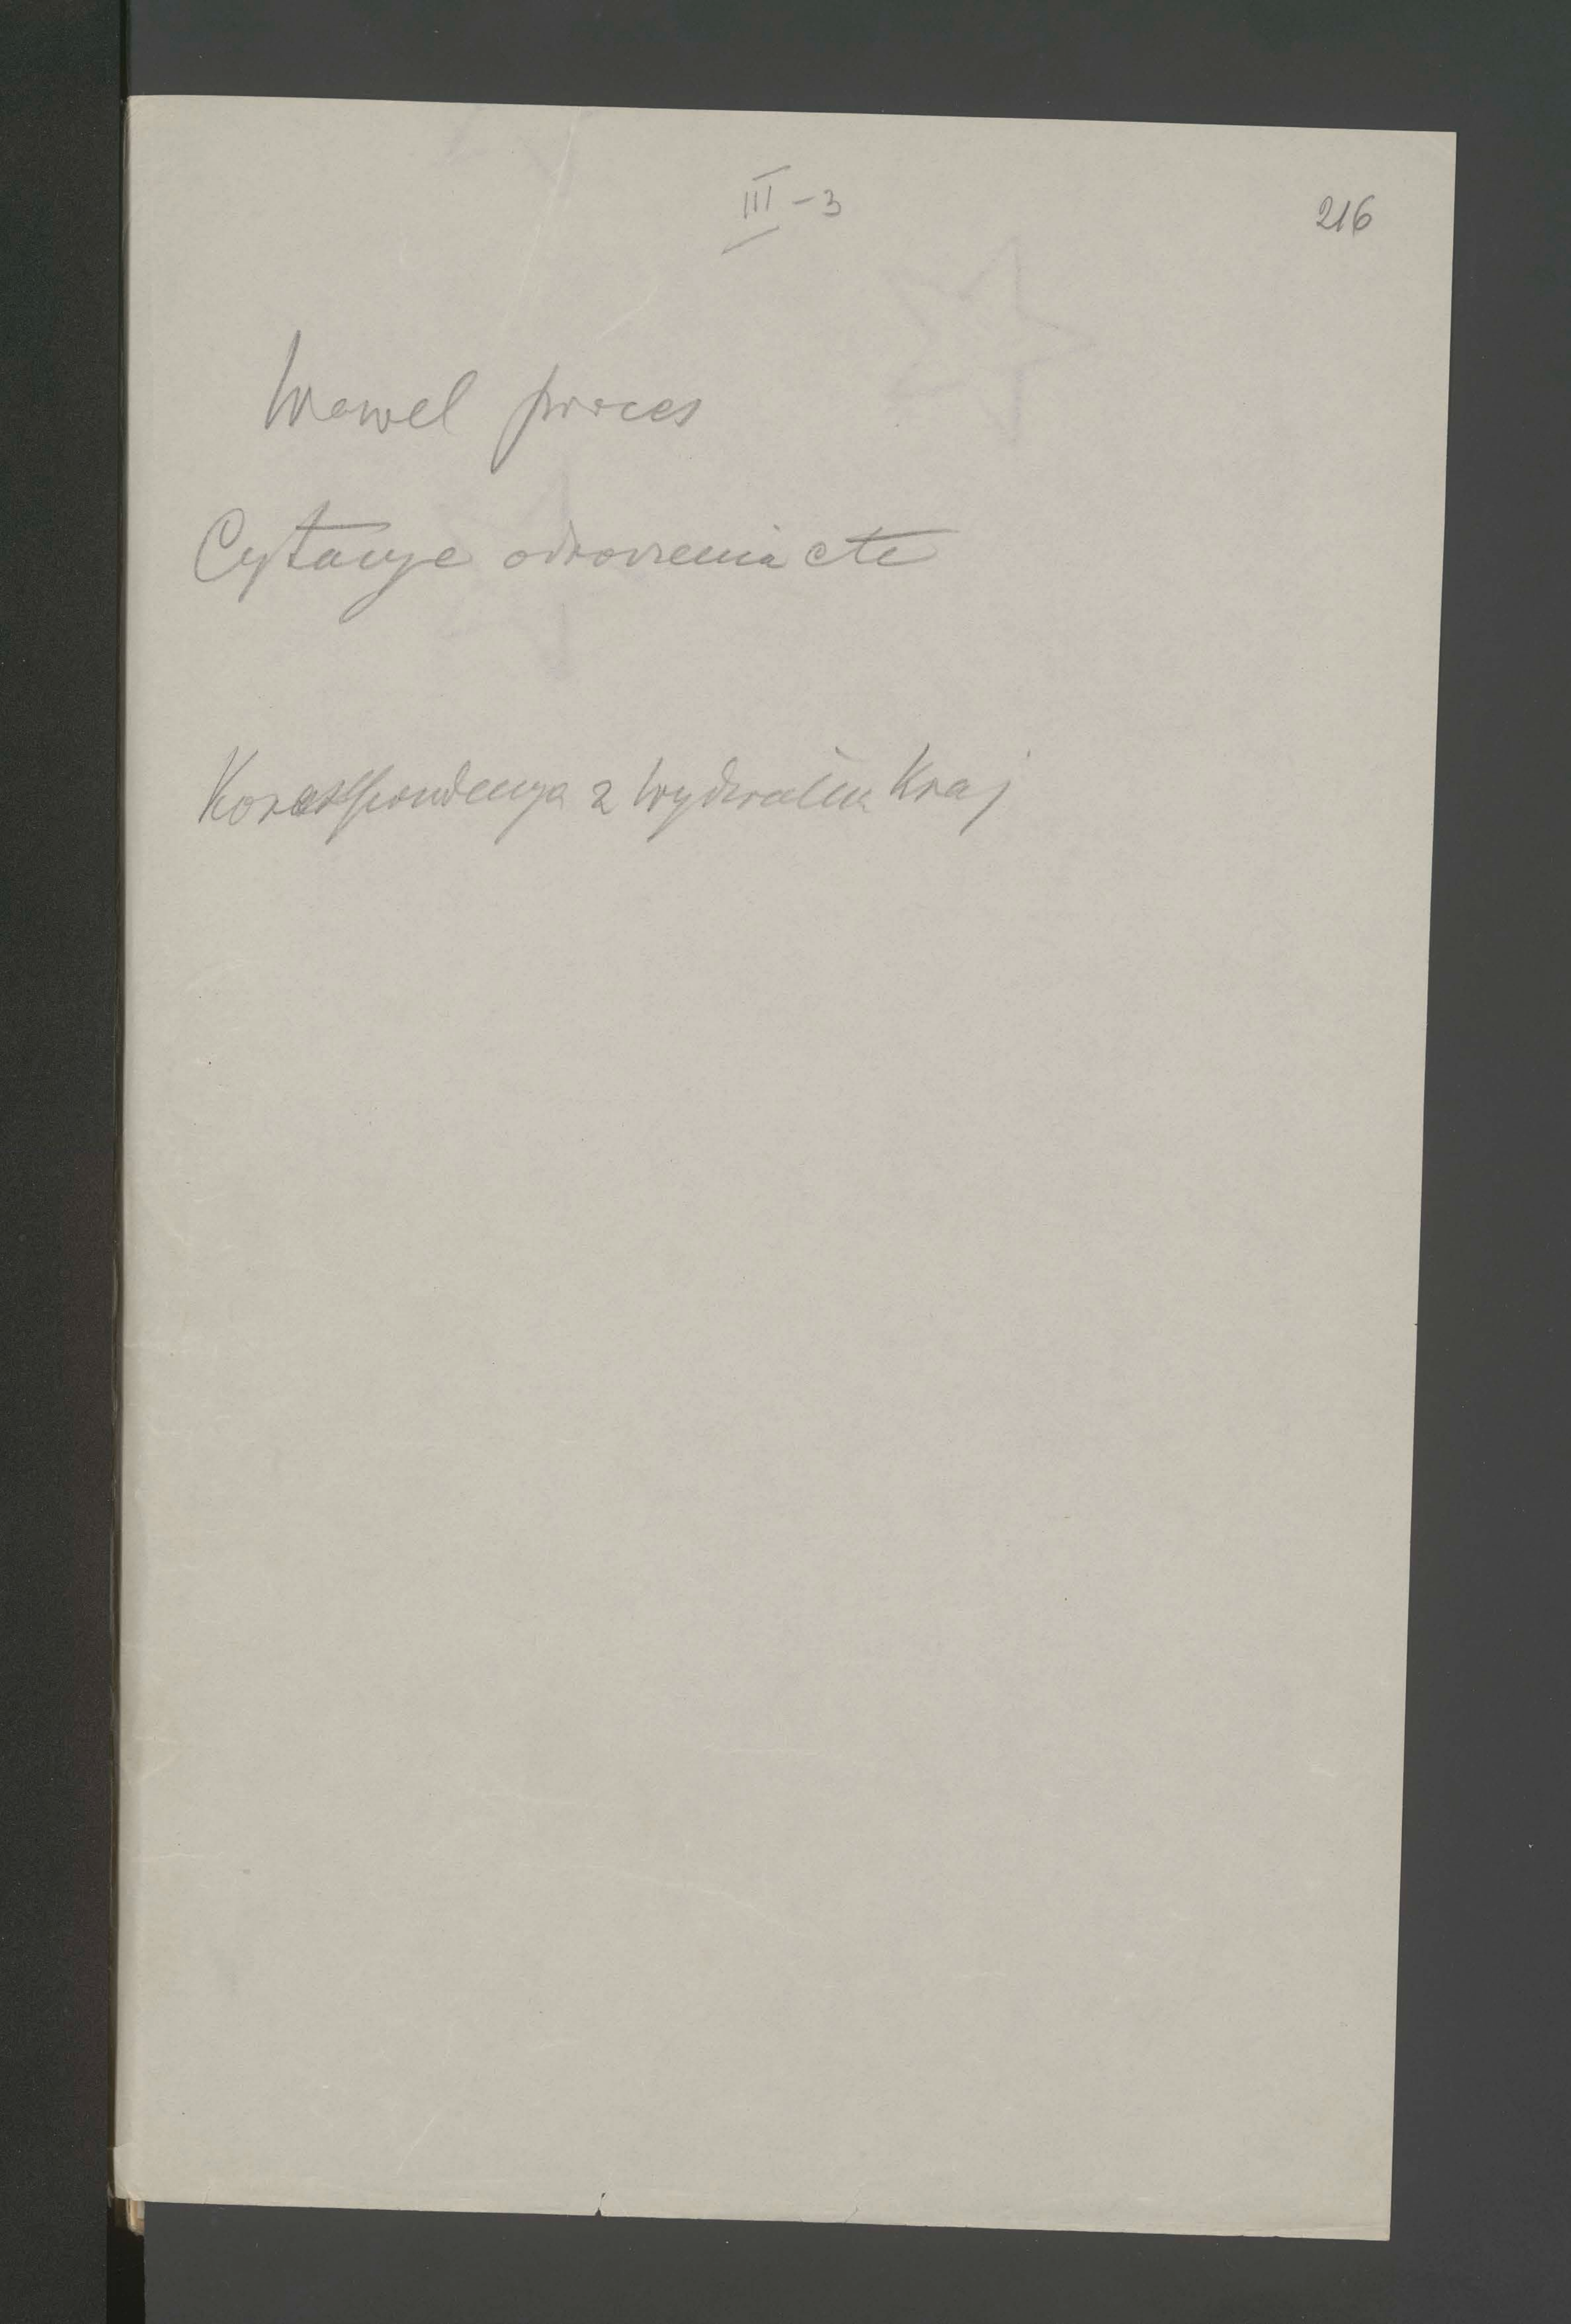 III - 3
216
Wawel proces
Cytacye odroczenia etc
Korespondencya z Wydziałem Kraj